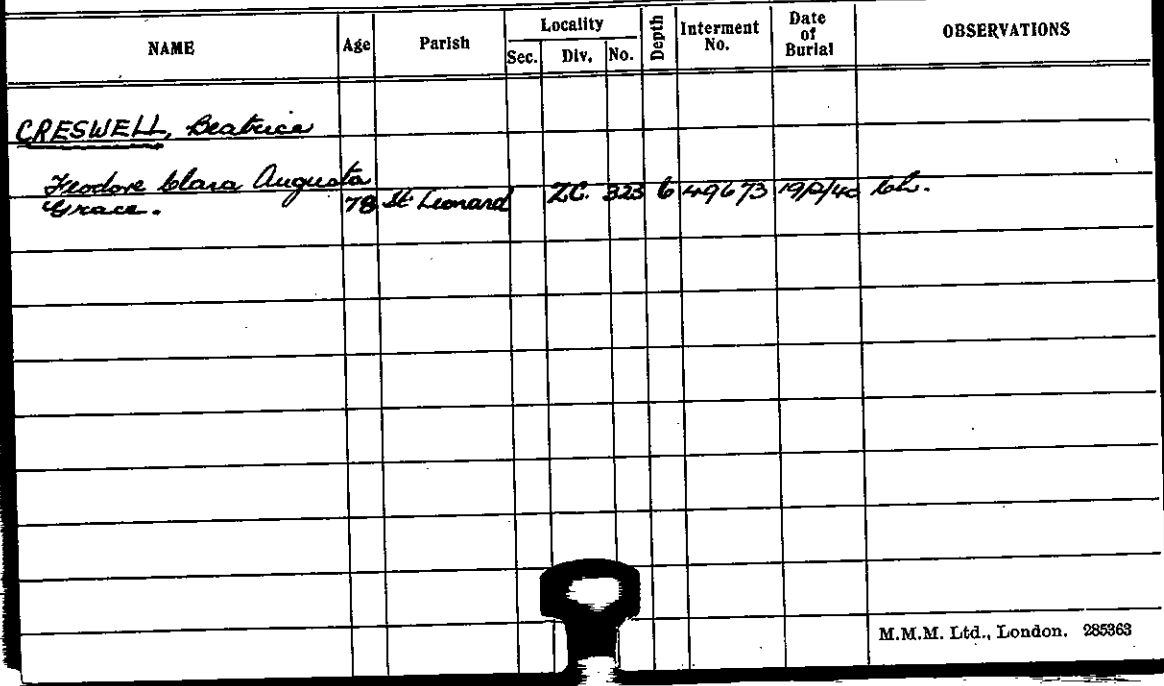 NAME Age Parish Locality Depth Interment No. Date of Burial OBSERVATIONS
Sec. Div. No.
CRESWELL, Beatrice
Feodore Clara Augusta
Grace. 78 St. Leonard ZC. 323 6 49673 19/2/40 Ch.
M.M.M. Ltd., London. 285363